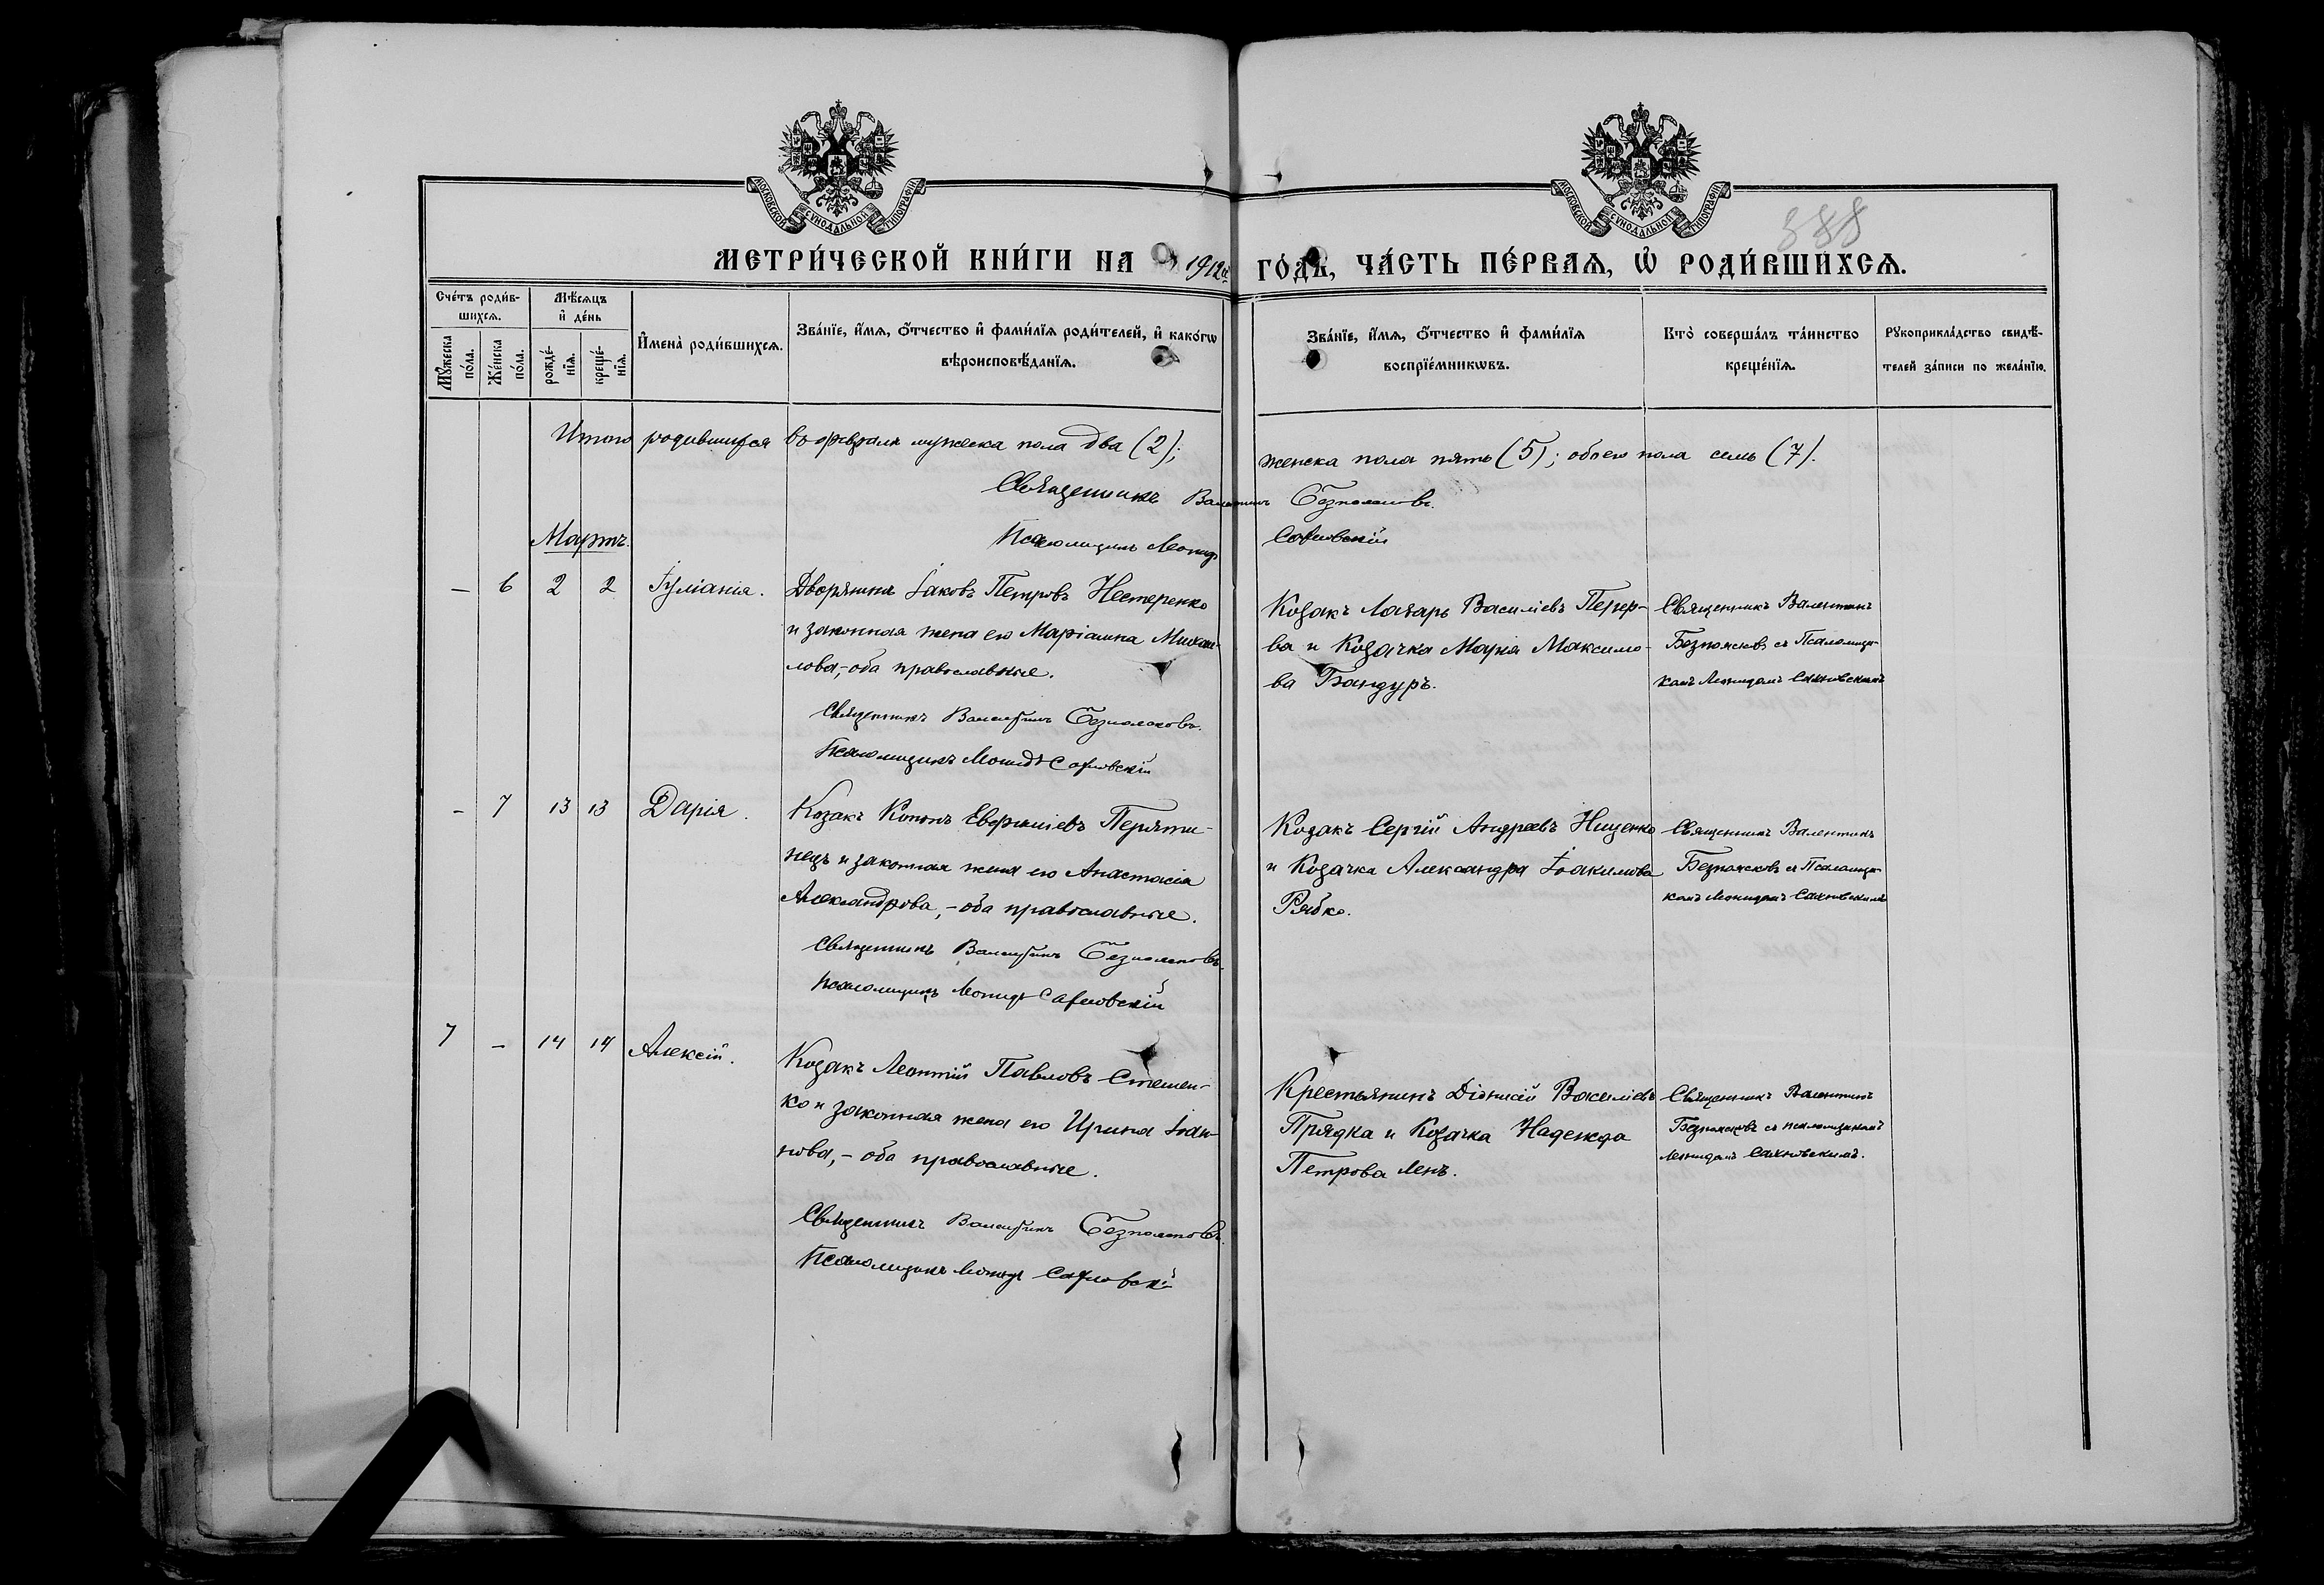 МОСКОВСКОЙ СѴНОДАЛЬНОЙ ТИПОГРАФІИ
МОСКОВСКОЙ СѴНОДАЛЬНОЙ ТИПОГРАФІИ
388
МЕТРИ́ЧЕСКОЙ КНИ́ГИ НА 1912й ГО́ДЪ, ЧА́СТЬ ПЕ́РВАѦ, Ѡ҆ РОДИ́ВШИХСѦ.
Сче́тъ роди́в-
шихсѧ.
Мѣ́сѧцъ
и҆ де́нь
Мꙋ́жеска
по́ла.
Же́нска
по́ла.
рожде́-
нїѧ.
креще́-
нїѧ.
И҆мена̀ роди́вшихсѧ.
Зва́нїе, и҆́мѧ, ѻ҆́тчество и҆ фами́лїѧ роди́телей, и҆ како́гѡ
вѣроисповѣ́данїѧ.
Зва́нїе, и҆́мѧ, ѻ҆́тчество и҆ фами́лїѧ
воспрїе́мникѡвъ.
Кто̀ соверша́лъ та́инство
креще́нїѧ.
Рꙋкоприкла́дство свидѣ́-
телей за́писи по жела́нїю.
Итого родившихся въ февралѣ мужеска пола два (2);
женска пола пять (5); обоего пола семь (7).
Священникъ Валентинъ Безпояковъ
Псаломщикъ Леонидъ Сахновскій
Мартъ.
— 6 2 2 Іуліанія.
Дворянинъ Іаковъ Петровъ Нестеренко
и законная жена его Маріамна Михаи-
лова,- оба православные.
Священникъ Валентинъ Безпояковъ.
Псаломщикъ Леонидъ Сахновскій
Козакъ Лазарь Василіевъ Перер-
ва и Козачка Марія Максимо-
ва Бандуръ.
Священникъ Валентинъ
Безпояковъ съ Псаломщи-
комъ Леонидомъ Сахновскимъ
- 7 13 13 Дарія.
Козакъ Кононъ Евфиміевъ Перяти-
нецъ и законная жена его Анастасія
Александрова,- оба православные.
Священникъ Валентинъ Безпояковъ.
Псаломщикъ Леонидъ Сахновскій
Козакъ Сергій Андреевъ Ищенко
и Козачка Александра Іоакимова
Рябко.
Священникъ Валентинъ
Безпояковъ съ Псаломщи-
комъ Леонидомъ Сахновскимъ
7 - 14 14 Алексій.
Козакъ Леонтій Павловъ Стешен-
ко и законная жена его Ирина Іоан-
нова,- оба православные.
Священникъ Валентинъ Безпояковъ.
Псаломщикъ Леонидъ Сахновскій
Крестьянинъ Діонисій Василіевъ
Прядка и Козачка Надежда
Петрова Ленъ.
Священникъ Валентинъ
Безпояковъ съ псаломщикомъ
Леонидомъ Сахновскимъ.